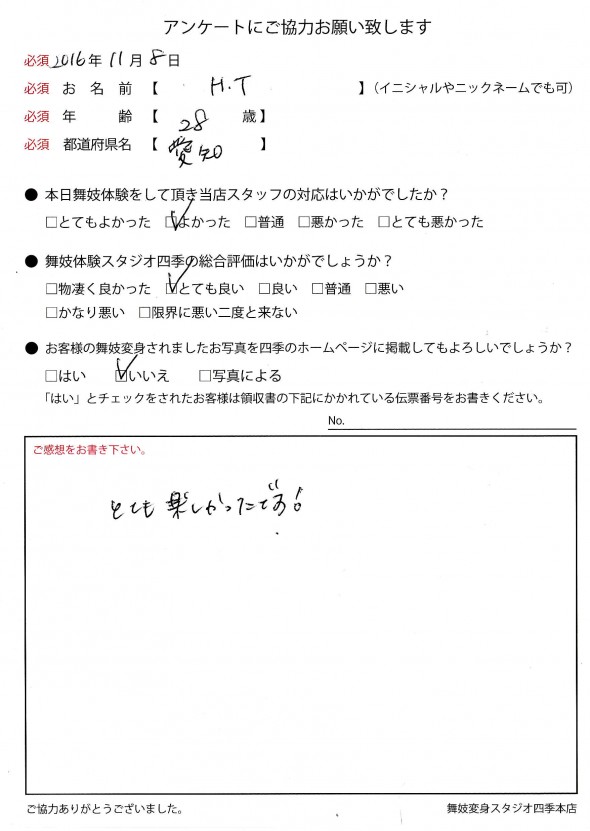 アンケートにご協力お願い致します
必須 2016年 11月 8日
必須 お名前 【 H.T 】（イニシャルやニックネームでも可）
必須 年齢 【 28 歳】
必須 都道府県名 【 愛知 】
● 本日舞妓体験をして頂き当店スタッフの対応はいかがでしたか？
□とてもよかった ☑よかった □普通 □悪かった □とても悪かった
● 舞妓体験スタジオ四季の総合評価はいかがでしょうか？
□物凄く良かった ☑とても良い □良い □普通 □悪い
□かなり悪い □限界に悪い二度と来ない
● お客様の舞妓変身されましたお写真を四季のホームページに掲載してもよろしいでしょうか？
□はい ☑いいえ □写真による
「はい」とチェックをされたお客様は領収書の下記にかかれている伝票番号をお書きください。
No.
ご感想をお書き下さい。
とても楽しかったです!
ご協力ありがとうございました。 舞妓変身スタジオ四季本店